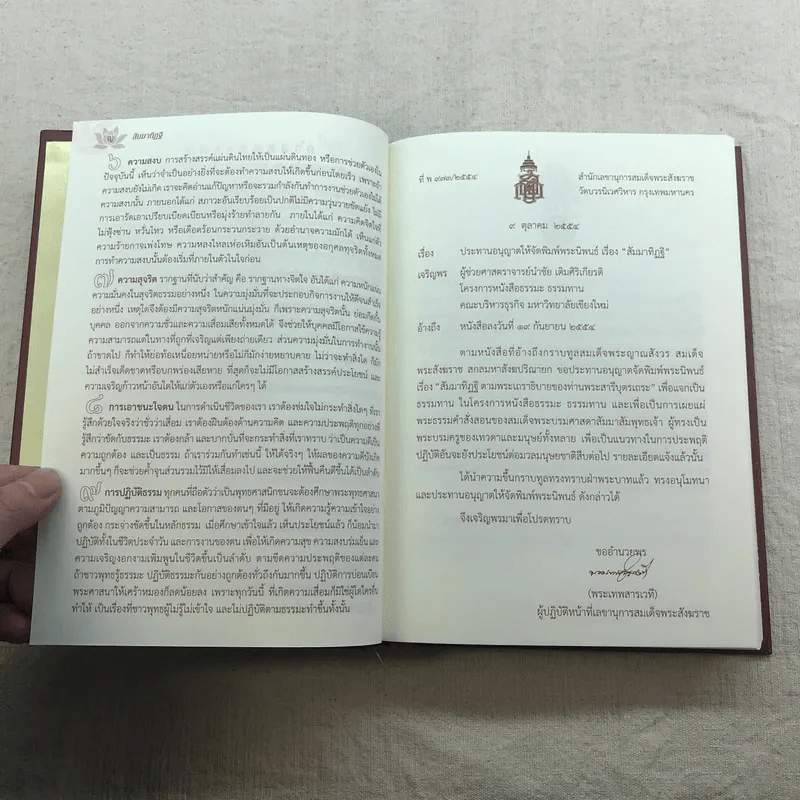 สัมมาทิฏฐิ
๖ ความสงบ การสร้างสรรค์แผ่นดินไทยให้เป็นแผ่นดินทอง หรือการช่วยตัวเองใน
ปัจจุบันนี้ เห็นว่าจำเป็นอย่างยิ่งที่จะต้องทำความสงบให้เกิดขึ้นก่อนโดยเร็ว เพราะถ้า
ความสงบยังไม่เกิด เราจะคิดอ่านแก้ปัญหาหรือจะรวมกำลังกันทำการงานช่วยตัวเองไม่ได้
ความสงบนั้น ภายนอกได้แก่ สภาวะอันเรียบร้อยเป็นปกติไม่มีความวุ่นวายขัดแย้ง ไม่มี
การเอารัดเอาเปรียบเบียดเบียนหรือมุ่งร้ายทำลายกัน ภายในได้แก่ ความคิดจิตใจที่
ไม่ฟุ้งซ่าน หวั่นไหว หรือเดือดร้อนกระวนกระวาย ด้วยอำนาจความมักได้ เห็นแก่ตัว
ความร้ายกาจเพ่งโทษ ความหลงใหลเห่อเหิมอันเป็นต้นเหตุของอกุศลทุจริตทั้งหมด
การทำความสงบนั้นต้องเริ่มที่ภายในตัวในใจก่อน
๗ ความสุจริต รากฐานที่นับว่าสำคัญ คือ รากฐานทางจิตใจ อันได้แก่ ความหนักแน่น
ความมั่นคงในสุจริตธรรมอย่างหนึ่ง ในความมุ่งมั่นที่จะประกอบกิจการงานให้ดีจนสำเร็จ
อย่างหนึ่ง เหตุใดจึงต้องมีความสุจริตหนักแน่นมุ่งมั่น ก็เพราะความสุจริตนั้น ย่อมกีดกั้น
บุคคล ออกจากความชั่วและความเสื่อมเสียทั้งหมดได้ จึงช่วยให้บุคคลมีโอกาสใช้ความรู้
ความสามารถแต่ในทางที่ถูกที่เจริญแต่เพียงถ่ายเดียว ส่วนความมุ่งมั่นในการทำงานนั้น
ถ้าขาดไป ก็ทำให้ย่อท้อเหนื่อยหน่ายหรือไม่ก็มักง่ายหยาบคาย ไม่ว่าจะทำสิ่งใด ก็มัก
ไม่สำเร็จเด็ดขาดหรือบกพร่องเสียหาย ที่สุดก็จะไม่มีโอกาสสร้างสรรค์ประโยชน์ และ
ความเจริญก้าวหน้าอันใดให้แก่ตัวเองหรือแก่ใครๆ ได้
๘ การเอาชนะใจตน ในการดำเนินชีวิตของเรา เราต้องข่มใจไม่กระทำสิ่งใดๆ ที่เรา
รู้สึกด้วยใจจริงว่าชั่วว่าเสื่อม เราต้องฝืนต้องต้านความคิด และความประพฤติทุกอย่างที่
รู้สึกว่าขัดกับธรรมะ เราต้องกล้า และบากบั่นที่จะกระทำสิ่งที่เราทราบ ว่าเป็นความดีเป็น
ความถูกต้อง และเป็นธรรม ถ้าเราร่วมกันทำเช่นนี้ ให้ได้จริงๆ ให้ผลของความดีบังเกิด
มากขึ้นๆ ก็จะช่วยค้ำจุนส่วนรวมไว้มิให้เสื่อมลงไป และจะช่วยให้ฟื้นคืนดีขึ้นได้เป็นลำดับ
๙ การปฏิบัติธรรม ทุกคนที่ถือตัวว่าเป็นพุทธศาสนิกชนจะต้องศึกษาพระพุทธศาสนา
ตามภูมิปัญญาความสามารถ และโอกาสของตนๆ ที่มีอยู่ ให้เกิดความรู้ความเข้าใจอย่าง
ถูกต้อง กระจ่างชัดขึ้นในหลักธรรม เมื่อศึกษาเข้าใจแล้ว เห็นประโยชน์แล้ว ก็น้อมนำมา
ปฏิบัติทั้งในชีวิตประจำวัน และการงานของตน เพื่อให้เกิดความสุข ความสงบร่มเย็น และ
ความเจริญงอกงามเพิ่มพูนในชีวิตขึ้นเป็นลำดับ ตามขีดความประพฤติของแต่ละคน
ถ้าชาวพุทธรู้ธรรมะ ปฏิบัติธรรมะกันอย่างถูกต้องทั่วถึงกันมากขึ้น ปฏิบัติการบ่อนเบียน
พระศาสนาให้เศร้าหมองก็ลดน้อยลง เพราะทุกวันนี้ ที่เกิดความเสื่อมก็มิใช่ผู้ใดใครอื่น
ทำให้ เป็นเรื่องที่ชาวพุทธผู้ไม่รู้ไม่เข้าใจ และไม่ปฏิบัติตามธรรมะทำขึ้นทั้งนั้น
ที่ พ ๙๗๗/๒๕๕๔
สำนักเลขานุการสมเด็จพระสังฆราช
วัดบวรนิเวศวิหาร กรุงเทพมหานคร
๙ ตุลาคม ๒๕๕๔
เรื่อง ประทานอนุญาตให้จัดพิมพ์พระนิพนธ์ เรื่อง “สัมมาทิฏฐิ”
เจริญพร ผู้ช่วยศาสตราจารย์นำชัย เติมศิริเกียรติ
โครงการหนังสือธรรมะ ธรรมทาน
คณะบริหารธุรกิจ มหาวิทยาลัยเชียงใหม่
อ้างถึง หนังสือลงวันที่ ๑๙ กันยายน ๒๕๕๔
ตามหนังสือที่อ้างถึงกราบทูลสมเด็จพระญาณสังวร สมเด็จ
พระสังฆราช สกลมหาสังฆปริณายก ขอประทานอนุญาตจัดพิมพ์พระนิพนธ์
เรื่อง “สัมมาทิฏฐิ ตามพระเถราธิบายของท่านพระสารีบุตรเถระ” เพื่อแจกเป็น
ธรรมทาน ในโครงการหนังสือธรรมะ ธรรมทาน และเพื่อเป็นการเผยแผ่
พระธรรมคำสั่งสอนของสมเด็จพระบรมศาสดาสัมมาสัมพุทธเจ้า ผู้ทรงเป็น
พระบรมครูของเทวดาและมนุษย์ทั้งหลาย เพื่อเป็นแนวทางในการประพฤติ
ปฏิบัติอันจะยังประโยชน์ต่อมวลมนุษยชาติสืบต่อไป รายละเอียดแจ้งแล้วนั้น
ได้นำความขึ้นกราบทูลทรงทราบฝ่าพระบาทแล้ว ทรงอนุโมทนา
และประทานอนุญาตให้จัดพิมพ์พระนิพนธ์ ดังกล่าวได้
จึงเจริญพรมาเพื่อโปรดทราบ
ขออำนวยพร
(พระเทพสารเวที)
ผู้ปฏิบัติหน้าที่เลขานุการสมเด็จพระสังฆราช